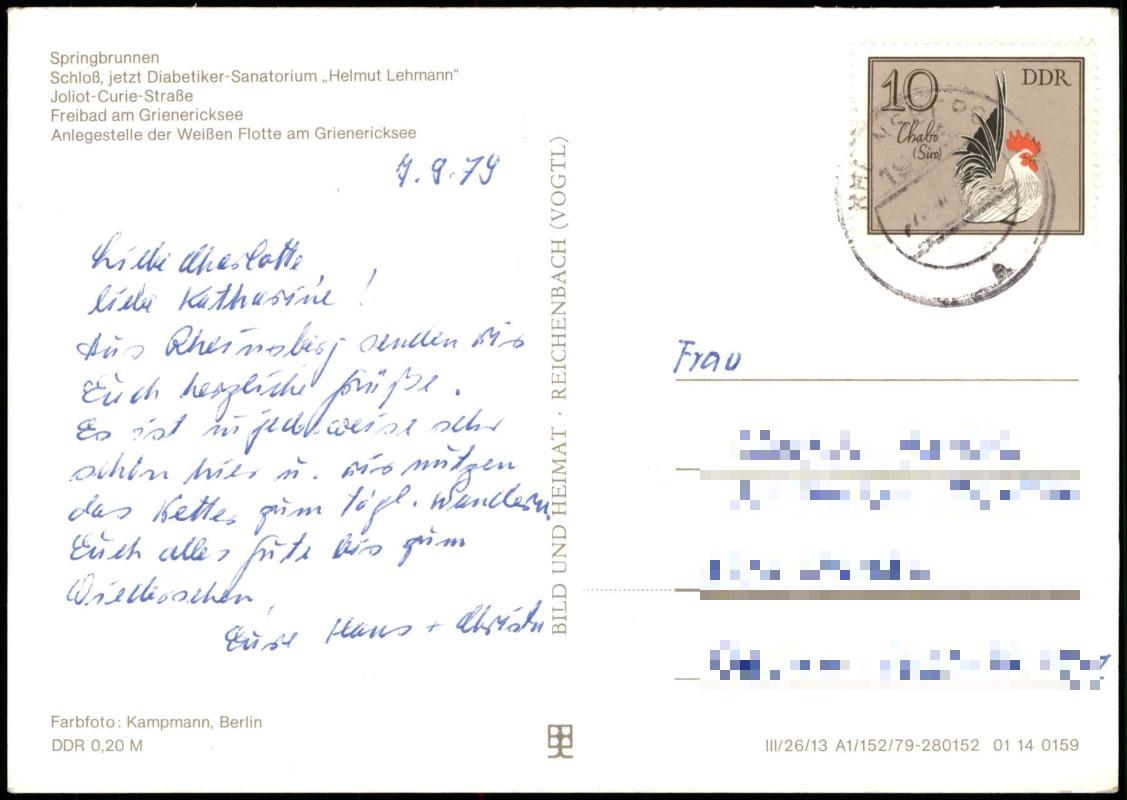 Springbrunnen
Schloß, jetzt Diabetiker-Sanatorium „Helmut Lehmann“
Joliot-Curie-Straße
Freibad am Grienericksee
Anlegestelle der Weißen Flotte am Grienericksee
7.9.79
Liebe Charlotte,
liebe Katharine!
Aus Rheinsberg senden wir
Euch herzliche Grüße.
Es ist sehr
schön hier u. wir nutzen
das Wetter zum tägl. Wandern.
Euch alles Gute bis zum
Wiedersehen,
Eure Hans +
Farbfoto: Kampmann, Berlin
DDR 0,20 M
BILD UND HEIMAT · REICHENBACH (VOGTL)
10
DDR
Chabo
(Siro)
Frau
III/26/13 A1/152/79-280152 01 14 0159